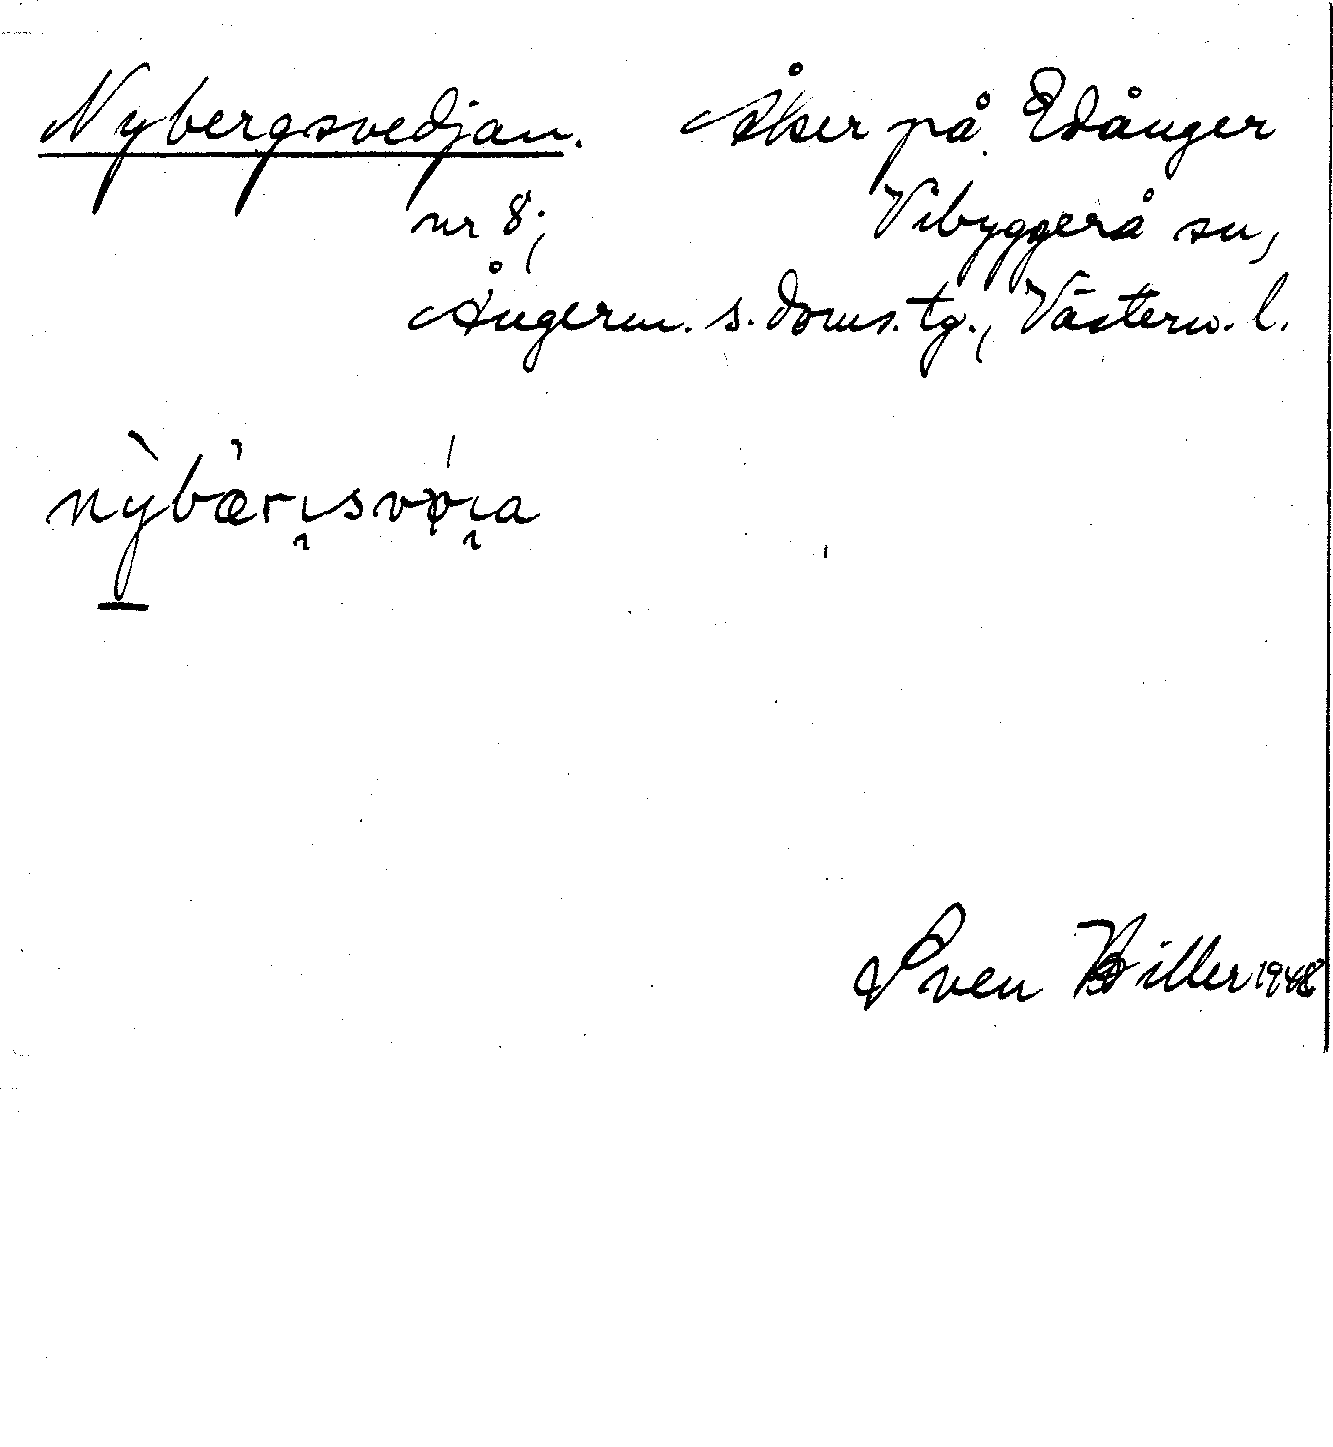 Nybergsvedjan. Åker på Edånger
nr 8; Vibyggerå sn,
Ångerm. s. doms. tg., Västern. l.
nỳbæ̀rı̨svøı̨a
Sven Hiller 1948